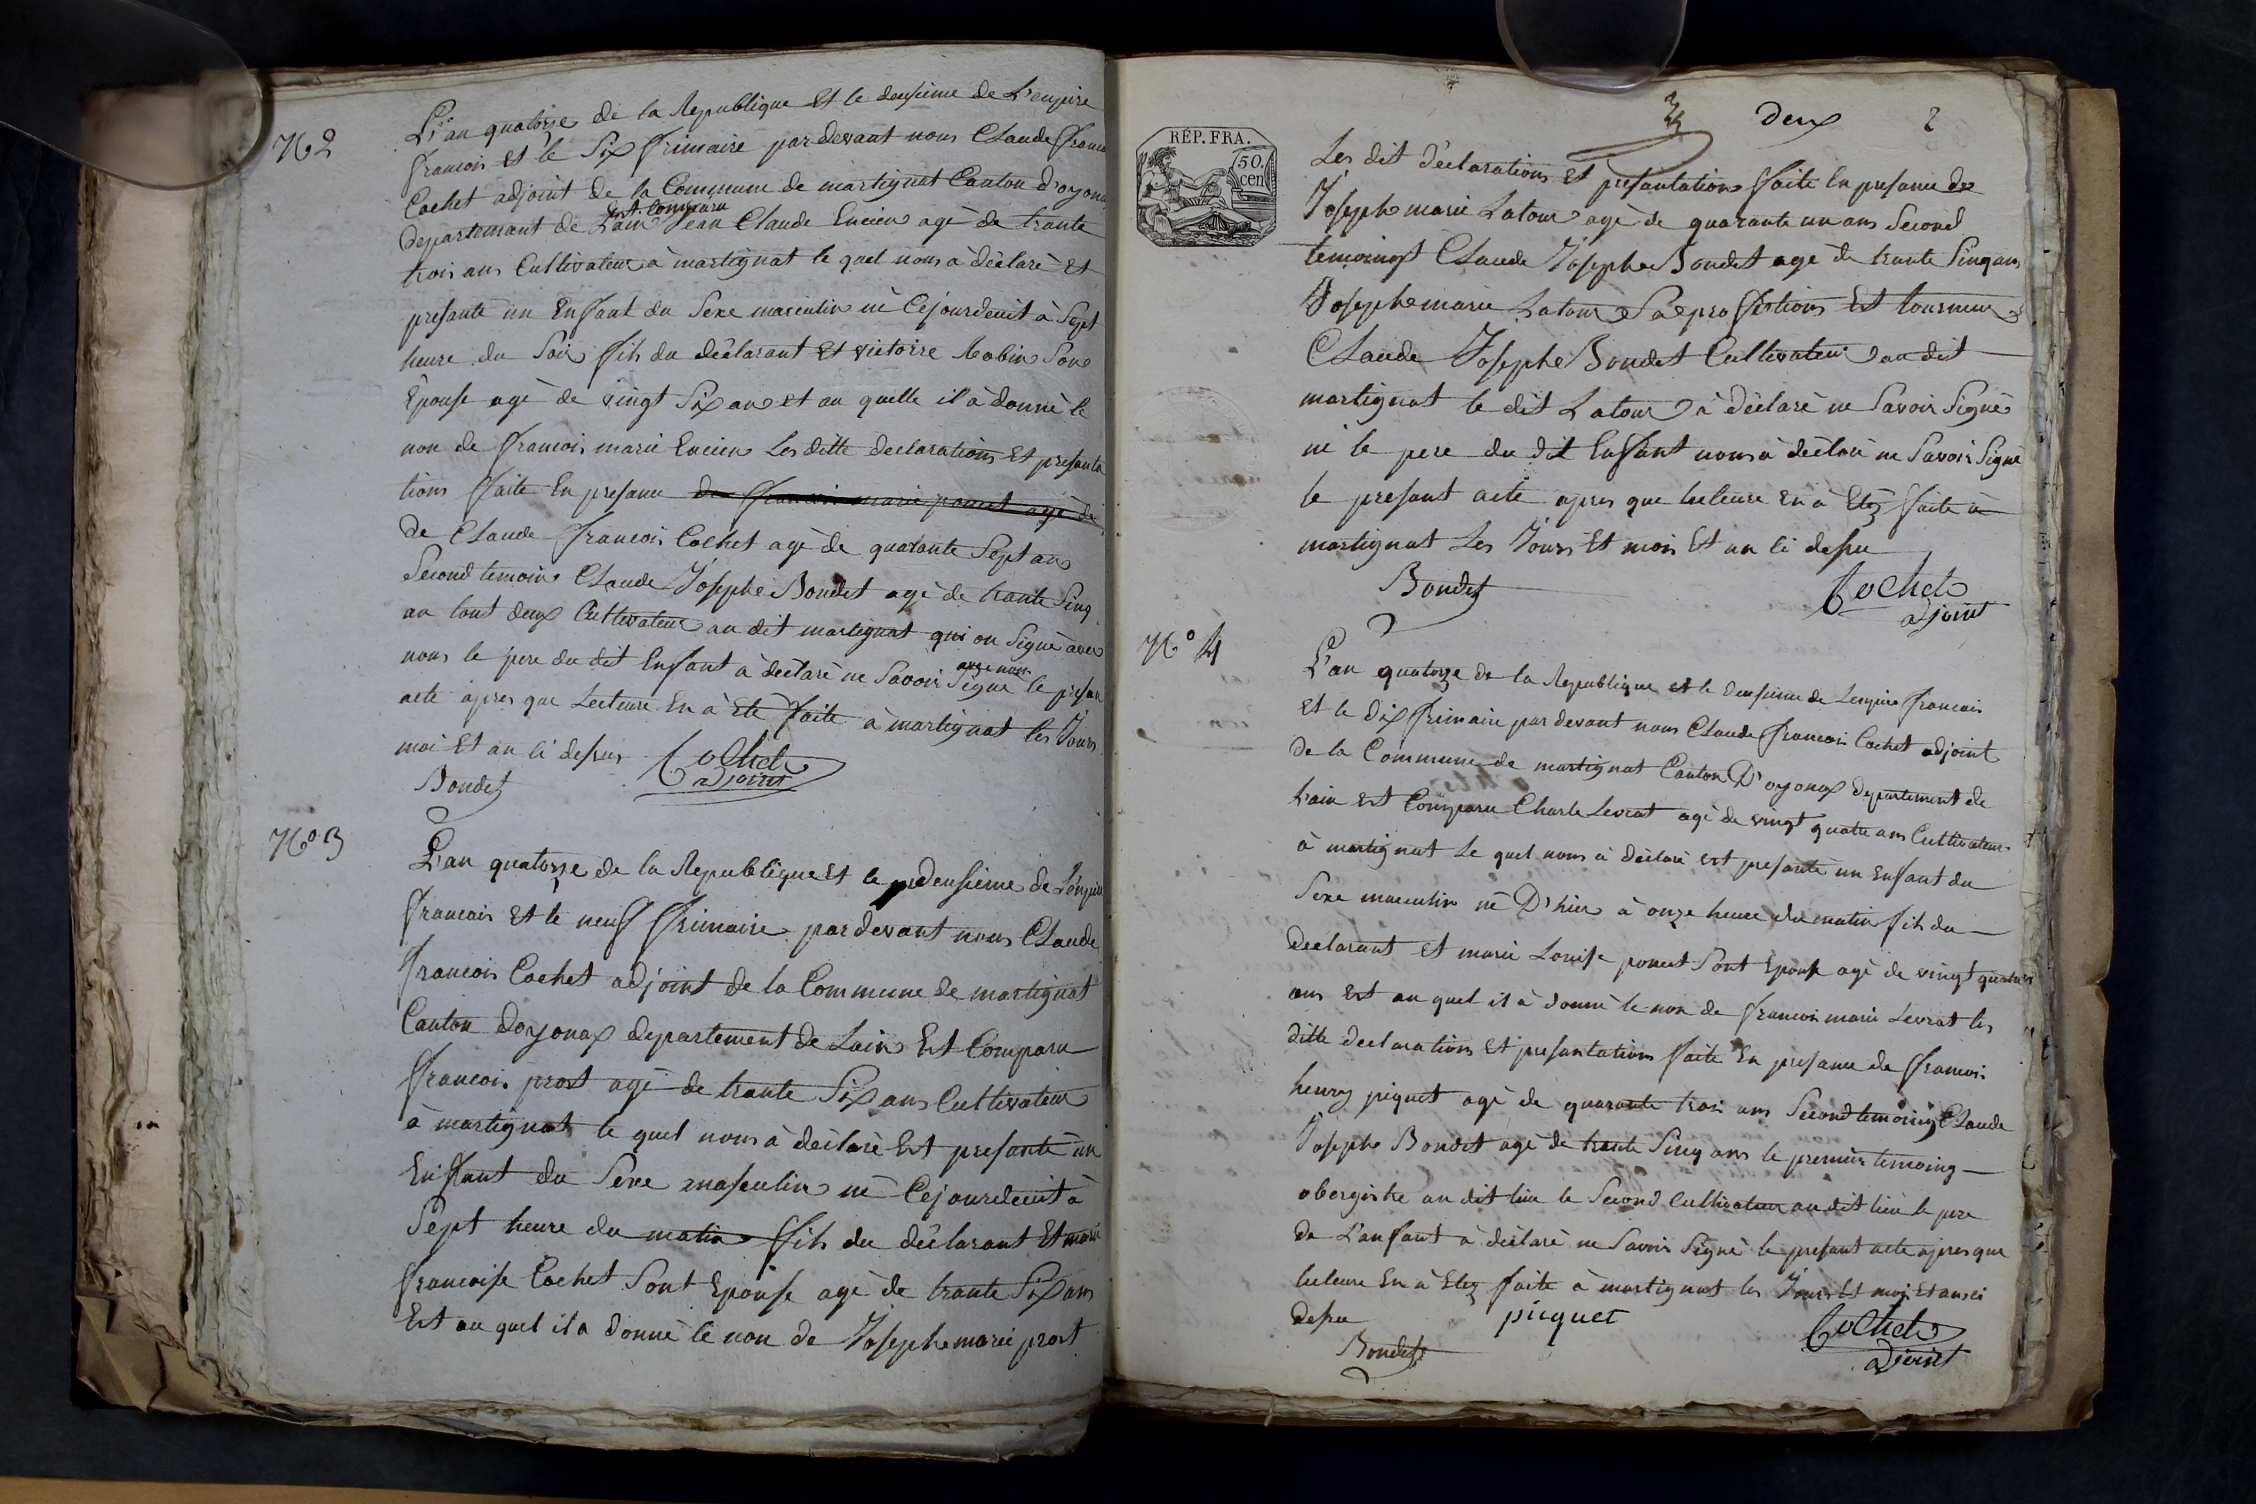 N 2
L'an quatorze de la Republique Et le deusieme de L'empire
francois et le Six frimaire par devant nous Claude franco
Cochet adjoint de la Commune de martignat Canton d'oyona
Est Comparu
departemant de Lain Jean Claude Encien agé de trante
trois ans Cultivateur à martignat le quel nous à déclaré et
presanté un Enfant du Sexe masculin né Cejourdeuit à Sept
heure du Soir fils du déclarant et victoire Robin Son
Epouse agé de vingt Six an et au quelle il à donné le
non de francois marie Encien Les ditte declarations et presanta
tions faite En presance de francois marie poncet agé de
de Claude francois Cochet agé de quarante Sept an
Second temoin Claude Josephe Bondet agé de trante Sinq
an tout deux Cultivateur au dit martignat qui on Signé avec
nous le pere du dit Enfant à déclaré ne Savoir Signé le presan
avec nous
acte apres que Lecteure En à Eté faite à martignat les Jours
moi Et an ci desus
Cochet
adjoint
Bondet
No 3
L'an quatorze de la Republique Et le deusieme de L'empire
francois Et le neuf frimaire par devant nous Claude
francois Cochet adjoint de la Commune de martignat
Canton doyonax departement de Lain Est Comparu
francois prost agé de trante Six ans Cultivateur
à martignat le quel nous à déclaré Est presanté un
Enfant du Sexe masculin né Cejourdeuit à
Sept heure du matin fils du déclarant Et marie
francoise Cochet Sont Epouse agé de trante Six ans
Est au quel il a donné le non de Josephe marie prost
deux 2
RÉP. FRA.
50.
cen
Les dit déclarations Et presantations faite En presance de
Josephe marie Latour agé de quarante un ans Second
temoingt Claude Josephe Bondet agé de trante Sinq ans
Josephe marie Latour Sa profetions Est tourneur
Claude Josephe Bondet Cultivateur au dit
martignat le dit Latour à déclaré ne Savoir Signé
ni le pere du dit Enfant nous à déclaré ne Savoir Signé
le presant acte apres que lecteure En à Etez faite à
martignat Les Jours Et mois Et an Ci desu
Bondet
Cochet
adjoint
No 4
L'an quatorze de la Republique et le deusieme de Lenpire francois
Et le Dix frimaire par devant nous Claude francois Cochet adjoint
de la Commune de martignat Canton D'oyonax departement de
Lain Est Comparu Charle Levrat agé de vingt quatre ans Cultivateur
à martignat Le quel nous à déclaré est presanté un Enfant du
Sexe masculin né D'hier à onze heure du matin fils du
Declarant et marie Louise poncet Sont Epouse agé de vingt quatre
ans Est au quel il à donné le non de francois marie Levrat les
ditte declarations et presantations faite En presance de francois
henry piquet agé de quarante trois ans Second temoing Claude
Josephe Bondet agé de trante Sinq ans le premier temoing
obergiste au dit lieu le Second Cultivateur au dit lieu le pere
de L'anfant à déclaré ne Savoir Signé le presant acte apres que
lecteure En à Etez faite à martignat les Jours Et moi Et an ci
desu
picquet
Cochet
adjoint
Bondet